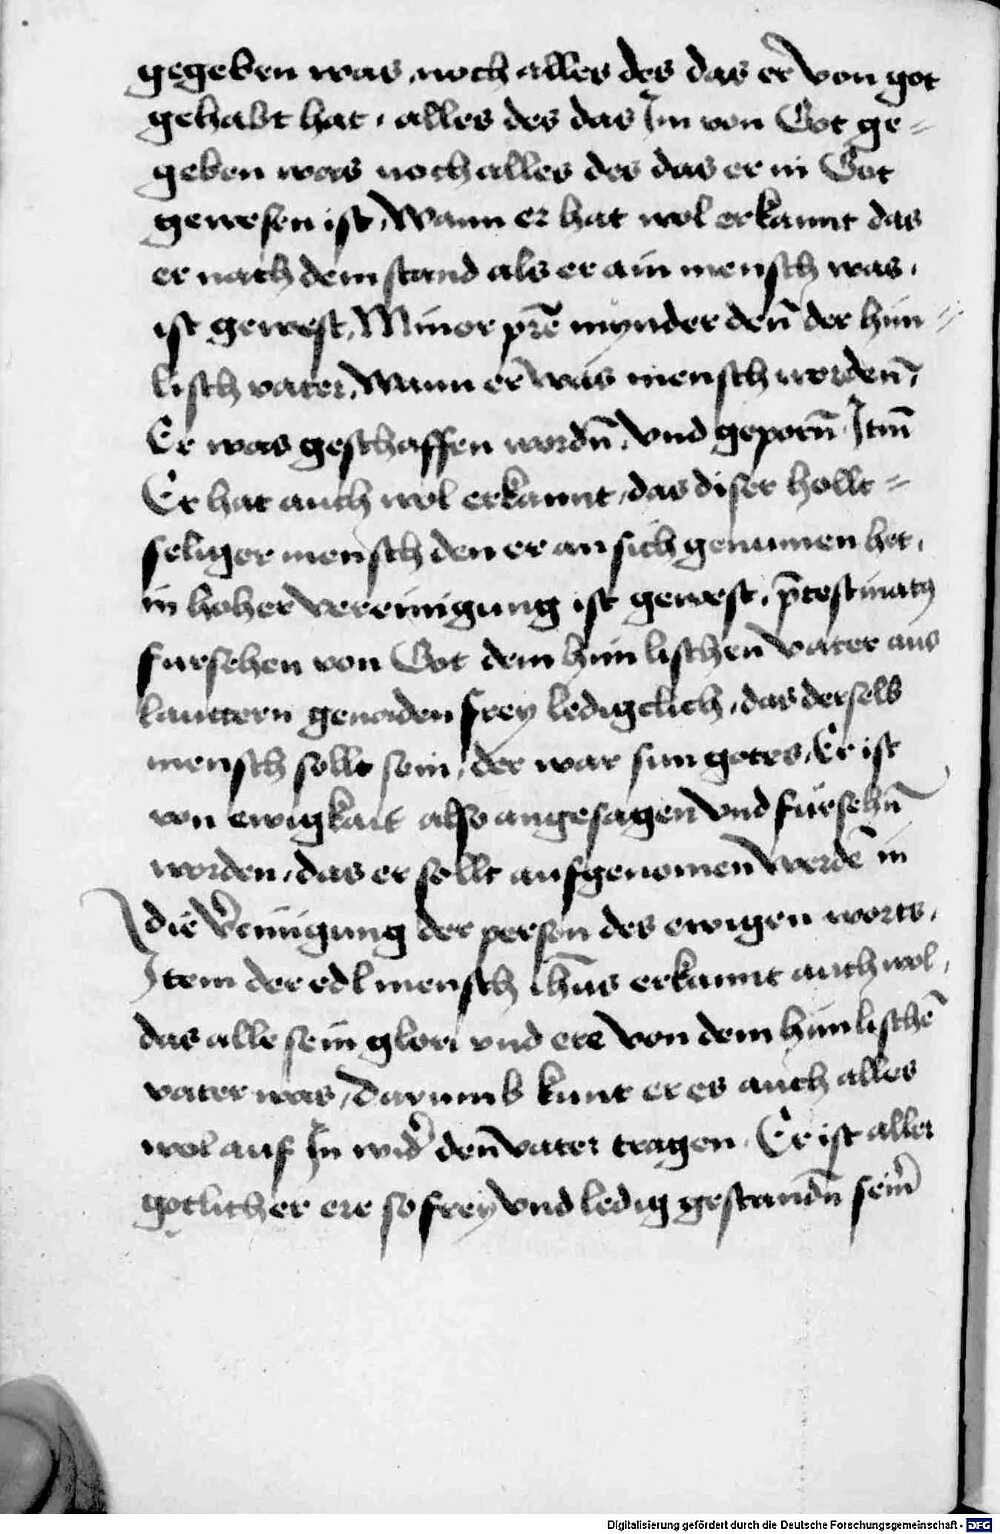 gegeben was, noch alles des das er von got
gehabt hat, alles des das Im von Got ge=
geben was noch alles des das er in Got
gewesen ist, Wann er hat wol erkannt das
er nach dem stand als er ain mensch was,
ist gewest, Minor pr̄e mynder deñ der him=
lisch vater, Wann er was mensch worden,
Er was geschaffen wordñ, vnd geporñ Itm̄
Er hat auch wol erkannt, das diser hollt=
seliger mensch den er an sich genummen het,
in hoher vereinigung ist gewest, p̄testinatꝯ
fürsehen von Got dem himlischen vater aus
lauttern genaden frey ledigclich, das derselb
mensch sollt sein, der war sun gotes, Er ist
von ewigkait also angesagen vnd fürsehñ
worden, das er sollt aufgenomen werdē in
die v̓einigung der person des ewigen worts,
Item der edl mensch ihūs erkannt auch wol,
das alle sein glori vnd ere von dem himlischē
vater was, darumb kunt er es auch alles
wol auf In wid̓ deñ vater tragen, Er ist aller
gotlicher ere so frey vnd ledig gestandñ sein̓
Digitalisierung gefördert durch die Deutsche Forschungsgemeinschaft - DFG